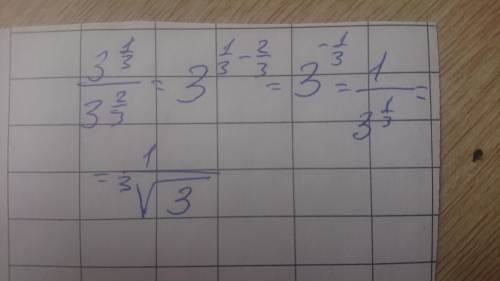 3^{1/3} / 3^{2/3} = 3^{1/3 - 2/3} = 3^{-1/3} = 1 / 3^{1/3} =
= 1 / ∛3